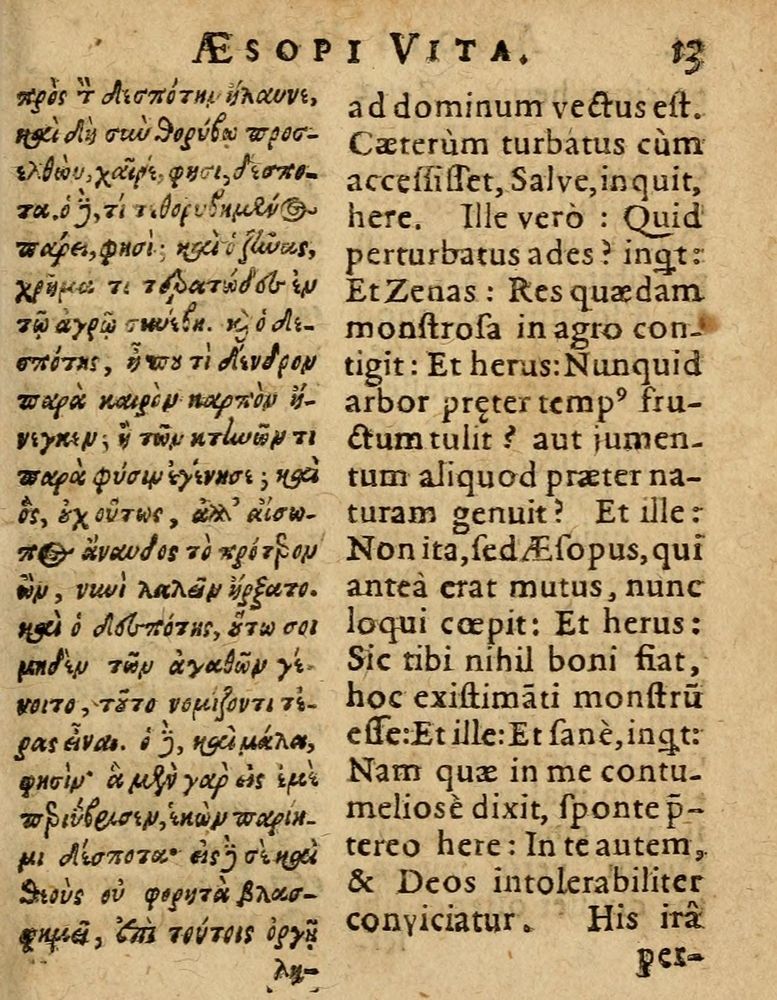 ÆSOPI VITA. 13
πρὸς τ̀ δεσπότην ἤλαυνε,
καὶ δὴ σὺν θορύβῳ προσ-
ελθὼν, χαῖρε, φησι, δέσπο-
τα. ὁ δὲ, τί τεθορυβημένος
πάρει, φησί; καὶ ὁ ζηνᾶς,
χρῆμά τι τερατῶδες ἐν
τῷ ἀγρῷ συνέβη. κ̀ ὁ δε-
σπότης, ἤπου τὶ δένδρον
παρὰ καιρὸν καρπὸν ἤ-
νεγκεν; ἢ τῶν κτηνῶν τι
παρὰ φύσιν ἐγέννησε; καὶ
ὃς, οὐχ οὕτως, ἀλλ’ αἴσω-
πος ἄναυδος τὸ πρότερον
ὢν, νυνὶ λαλεῖν ἤρξατο.
καὶ ὁ δεσπότης, οὕτω σοι
μηδὲν τῶν ἀγαθῶν γέ-
νοιτο, τοῦτο νομίζοντι τέ-
ρας εἶναι. ὁ δὲ, καὶ μάλα,
φησίν· ἃ μὲν γὰρ εἰς ἐμὲ
περιύβρισεν, ἑκὼν παρίη-
μι δέσποτα· εἰς δὲ σὲ καὶ
θεοὺς οὐ φορητὰ βλασ-
φημεῖ, ἐπὶ τούτοις ὀργῇ
λη-
ad dominum vectus est.
Cæterùm turbatus cùm
accessisset, Salve, inquit,
here. Ille verò : Quid
perturbatus ades? inqt:
Et Zenas : Res quædam
monstrosa in agro con-
tigit : Et herus: Nunquid
arbor pręter tempꝰ fru-
ctum tulit ? aut jumen-
tum aliquod præter na-
turam genuit? Et ille:
Non ita, sed Æsopus, qui
anteà erat mutus, nunc
loqui cœpit: Et herus:
Sic tibi nihil boni fiat,
hoc existimāti monstrū
esse: Et ille: Et sanè, inqt:
Nam quæ in me contu-
meliosè dixit, sponte p̄-
tereo here : In te autem,
& Deos intolerabiliter
conviciatur. His irâ
per-